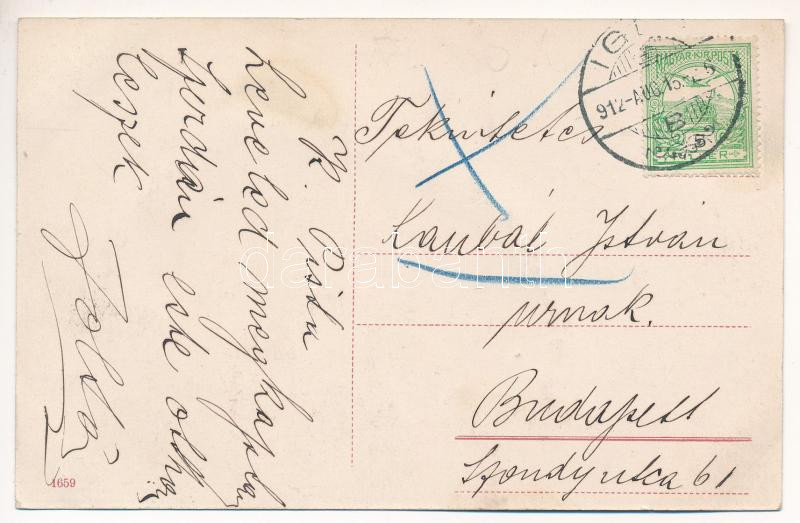 K. Pista
Leveled megkaptam
Szerdán este otthon
leszek
Zoltán
Tekintetes
István
urnak.
Budapest
Szondy utca 61
IGL
912 AUG. 15.
B
MAGYAR KIR. POSTA
1659
darabanth